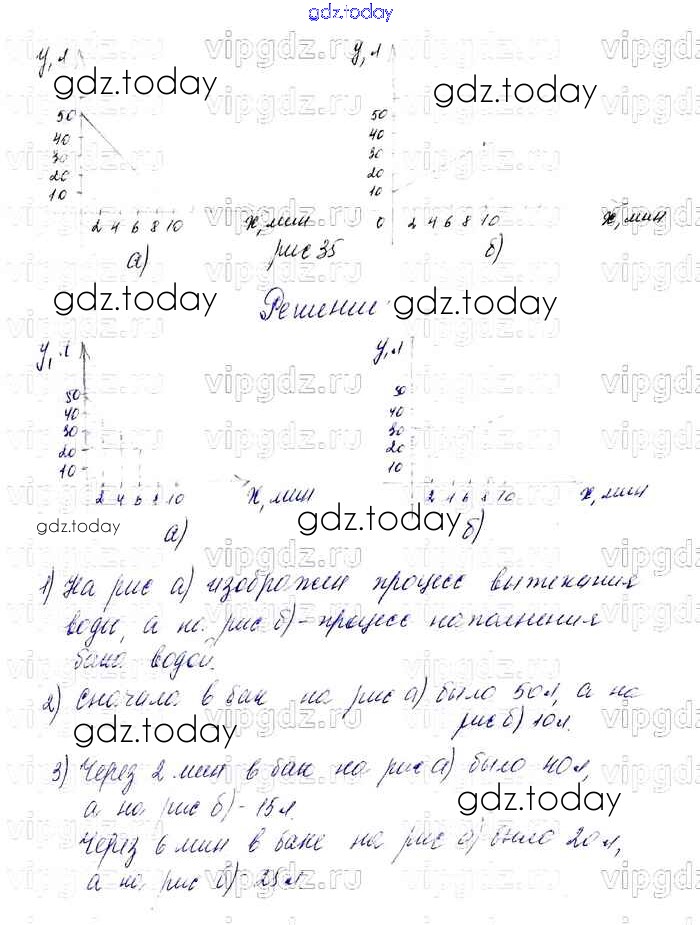 gdz.today
у, л
у, л
50
40
30
20
10
2 4 6 8 10
х, мин
а)
50
40
30
20
10
0
2 4 6 8 10
х, мин
б)
рис 35
Решение
у, л
у, л
50
40
30
20
10
2 4 6 8 10
х, мин
а)
50
40
30
20
10
2 4 6 8 10
х, мин
б)
1) На рис а) изображен процесс вытекания
воды, а на рис б) - процесс наполнения
бака водой.
2) Сначала в бак на рис а) было 50 л, а на
рис б) 10 л.
3) Через 2 мин в бак на рис а) было 40 л,
а на рис б) - 15 л.
Через 6 мин в баке на рис а) было 20 л,
а на рис б) 25 л.